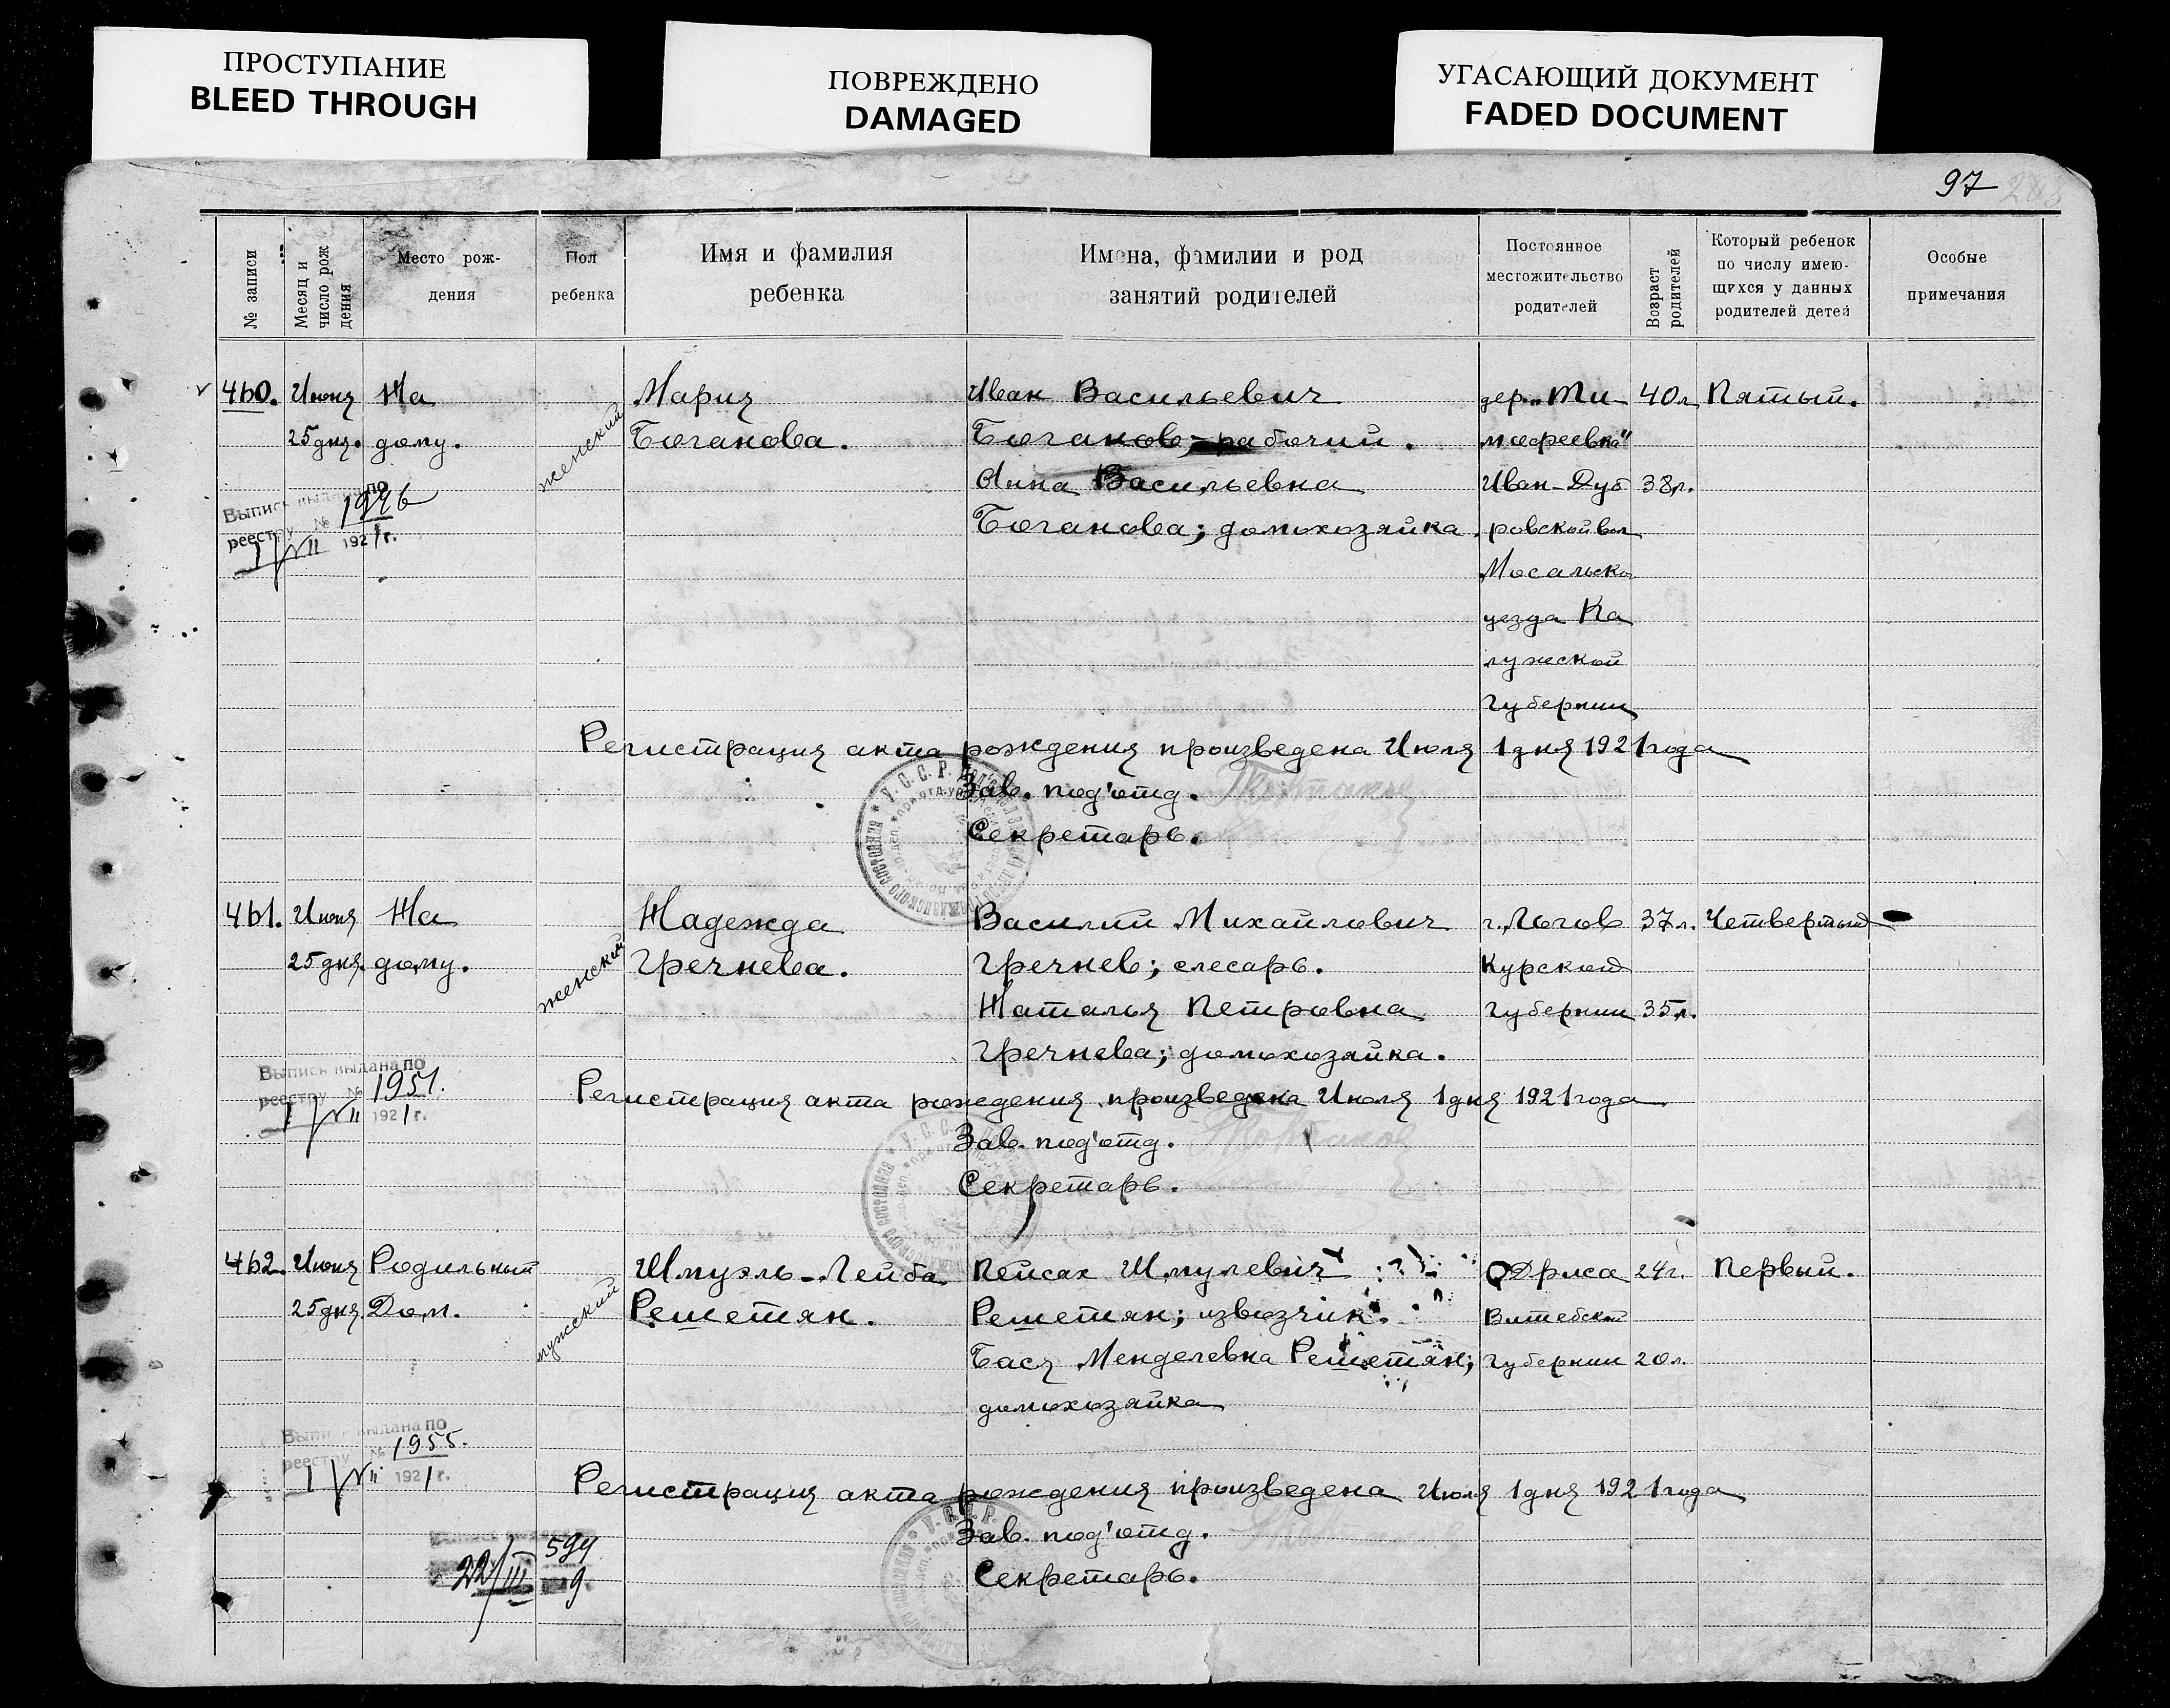 ПРОСТУПАНИЕ
BLEED THROUGH
ПОВРЕЖДЕНО
DAMAGED
УГАСАЮЩИЙ ДОКУМЕНТ
FADED DOCUMENT
97
№ записи
Месяц и число рож дения
Место рож-
дения
Пол
ребенка
Имя и фамилия
ребенка
Имена, фамилии и род
занятий родителей
Постоянное
местожительство
родителей
Возраст родителей
Который ребенок
по числу имею-
щихся у данных
родителей детей
Особые
примечания
460. Июня На женский Мария Иван Васильевич дер. „Ти 40 л. Пятый.
25 дня. дому. Боганова. Боганов; рабочий. мофеевка"
Анна Васильевна Иван-Дуб 38 л.
Боганова; домохозяйка. ровской вол
Выпись выдана по
реестру № 1946
1/VII 1921 г.
Мосальско
уезда Ка
лужской
Губернии
Регистрация акта рождения произведена Июля 1 дня 1921 года
Зав. под'отд.
Секретарь.
461. Июня На женский Надежда Василий Михайлович г. Льгов 37 л. Четвертый
25 дня. дому. Гречнева. Гречнев; слесарь. Курской
Наталья Петровна Губернии 35 л.
Гречнева; домохозяйка.
Выпись выдана по
реестру № 1951.
1/VII 1921 г.
Регистрация акта рождения произведена Июля 1 дня 1921 года
Зав. под'отд.
Секретарь.
462. Июня Родильный мужский Шмуэль-Лейба Пейсах Шмулевич Дрисса 24 г. Первый.
25 дня Дом. Решетян. Решетян; извозчик. Витебской
Бася Менделевна Решетян; Губернии 20 л.
домохозяйка
Выпись выдана по
реестру № 1955.
1/VII 1921 г.
Регистрация акта рождения произведена Июля 1 дня 1921 года
Зав. под'отд.
Секретарь.
594
22/III 9.